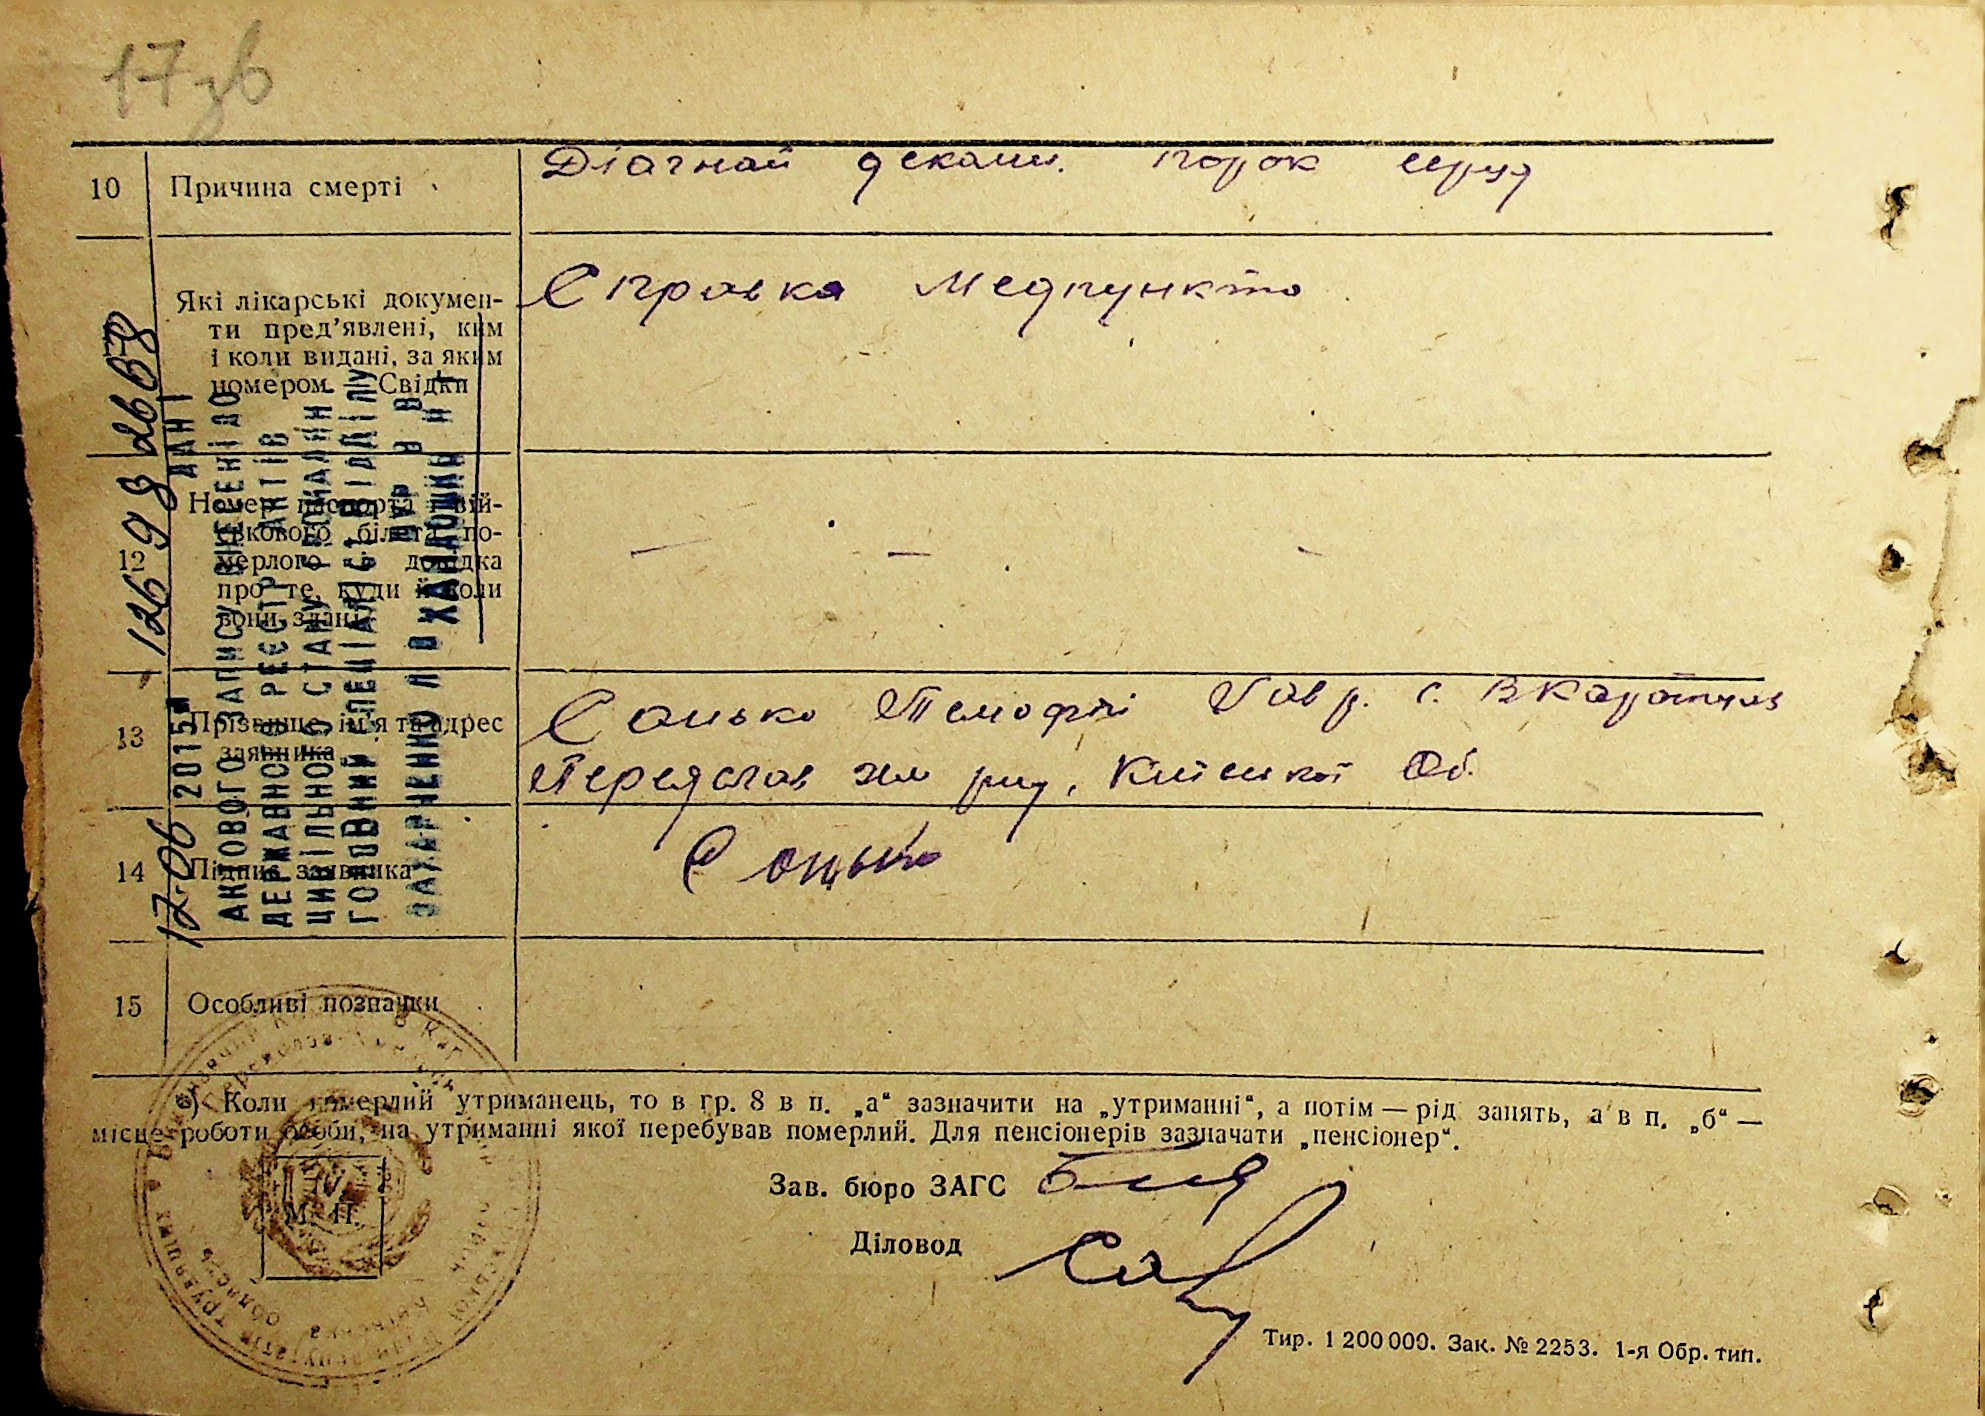 17зв
10 Причина смерті Діагноз декомп. порок серця
Які лікарські докумен-
ти пред’явлені, ким
і коли видані, за яким
номером. Свідки
Справка Медпункта
12 Номер паспорта і вій-
ськового білета по-
мерлого і довідка
про те, куди й коли
вони здані
— — -
13 Прізвище, ім’я та адрес
заявника
Сацько Темофій Гавр. с. В Каратуль
Переяслав Хм рну, Київської Об.
14 Підпис заявника Сацько
15 Особливі позначки
*) Коли померлий утриманець, то в гр. 8 в п. „а“ зазначити на „утриманні“, а потім — рід занять, а в п. „б“ —
місце роботи особи, на утриманні якої перебував померлий. Для пенсіонерів зазначати „пенсіонер“.
М. П.
Зав. бюро ЗАГС
Діловод
Тир. 1 200 000. Зак. № 2253. 1-я Обр. тип.
ДАНІ
АКТОВОГО ЗАПИСУ ВНЕСЕНІ ДО
ДЕРЖАВНОГО РЕЄСТРУ АКТІВ
ЦИВІЛЬНОГО СТАНУ ГРОМАДЯН
ГОЛОВНИЙ СПЕЦІАЛІСТ ВІДДІЛУ
17-06 2015